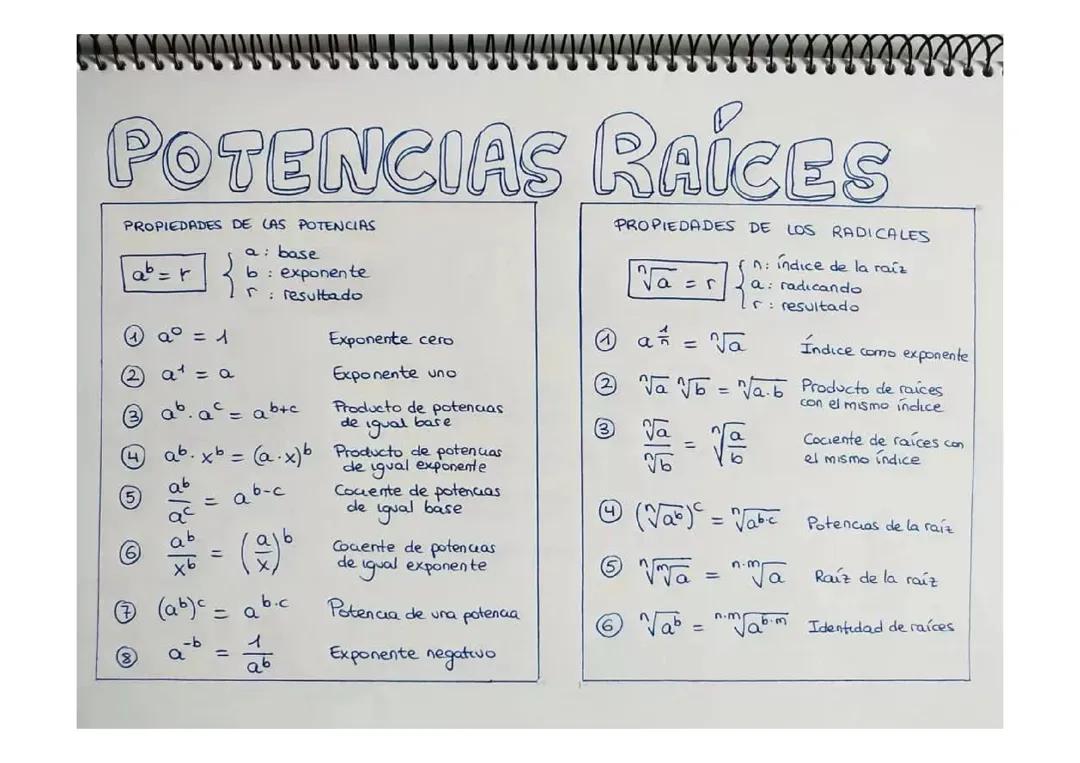 POTENCIAS RAÍCES
PROPIEDADES DE LAS POTENCIAS
a^b = r
a : base
b : exponente
r : resultado
① a^0 = 1 Exponente cero
② a^1 = a Exponente uno
③ a^b . a^c = a^(b+c) Producto de potencias
de igual base
④ a^b · x^b = (a·x)^b Producto de potencias
de igual exponente
⑤ a^b / a^c = a^(b-c) Cociente de potencias
de igual base
⑥ a^b / x^b = (a/x)^b Cociente de potencias
de igual exponente
⑦ (a^b)^c = a^(b·c) Potencia de una potencia
⑧ a^(-b) = 1 / a^b Exponente negativo
PROPIEDADES DE LOS RADICALES
ⁿ√a = r
n: índice de la raíz
a: radicando
r : resultado
① a^(1/n) = ⁿ√a Índice como exponente
② ⁿ√a ⁿ√b = ⁿ√(a.b) Producto de raíces
con el mismo índice
③ ⁿ√a / ⁿ√b = ⁿ√(a/b) Cociente de raíces con
el mismo índice
④ (ⁿ√(a^b))^c = ⁿ√(a^(b·c)) Potencias de la raíz
⑤ ⁿ√(ᵐ√a) = ⁿ·ᵐ√a Raíz de la raíz
⑥ ⁿ√(a^b) = ⁿ·ᵐ√(a^(b·m)) Identidad de raíces